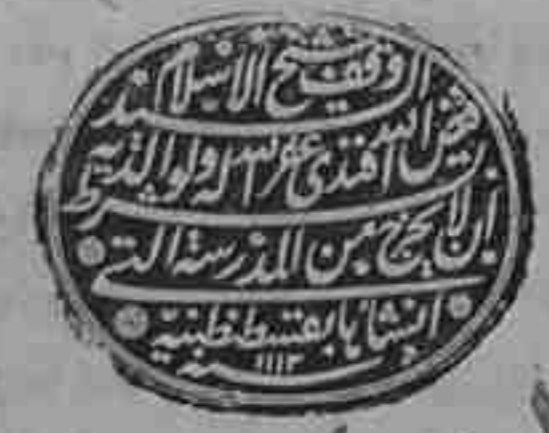 وقف شيخ الاسلام السيد
فيض الله افندى غفر الله له ولوالديه
بشرط ان لا يخرج عن المدرسة التي
انشاها بقسطنطنية
سنة ١١١٣